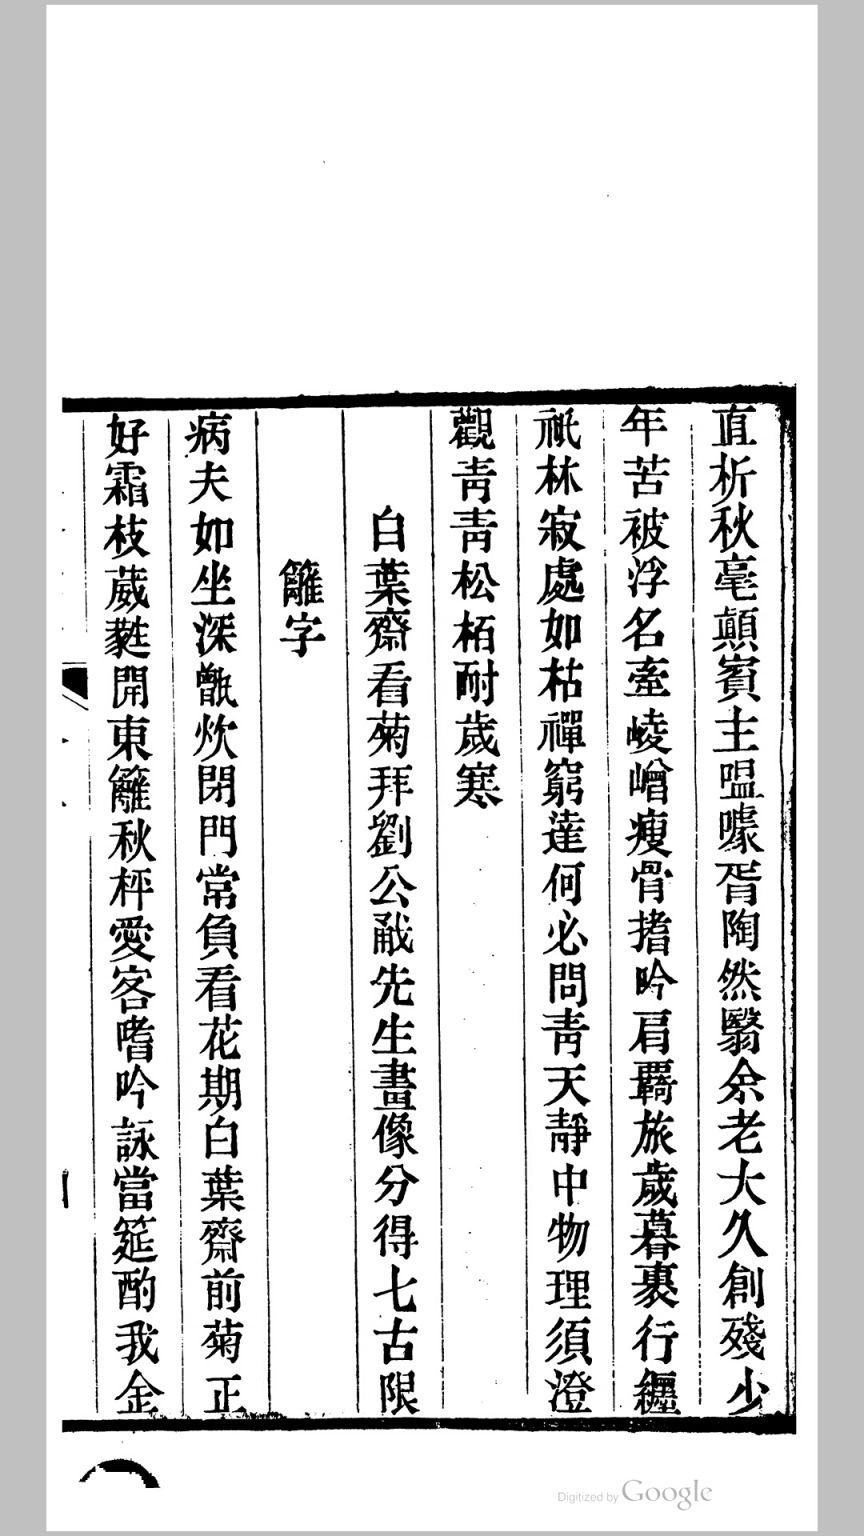 直析秋毫顛賓主嗢噱胥陶然翳余老大久創殘少
年苦被浮名牽崚嶒瘦骨搘吟肩羇旅歲暮裹行纏
祇林寂處如枯禪窮達何必問靑天靜中物理須澄
觀靑靑松栢耐歲寒
白葉齋看菊拜劉公㦸先生畫像分得七古限
籬字
病夫如坐深甑炊閉門常負看花期白葉齋前菊正
好霜枝葳蕤開東籬秋枰愛客嗜吟詠當筵酌我金
Digitized by Google